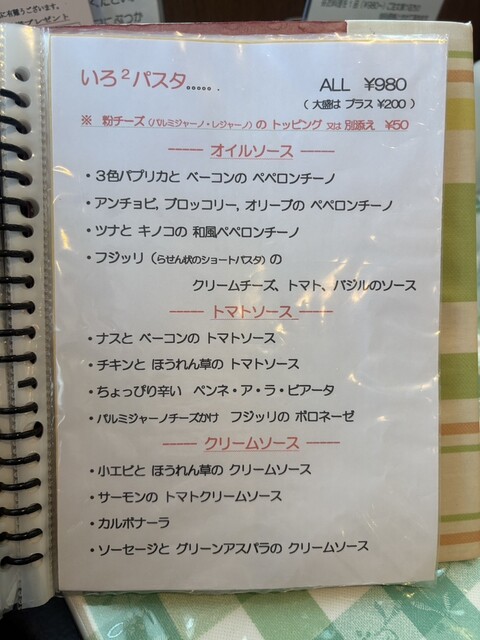 に有難うございます。
プレゼント
いろ²パスタ……. ALL ¥980
( 大盛は プラス ¥200 )
※ 粉チーズ (パルミジャーノ・レジャーノ) の トッピング 又は 別添え ¥50
――― オイルソース ―――
・３色パプリカと ベーコンの ペペロンチーノ
・アンチョビ, ブロッコリー, オリーブの ペペロンチーノ
・ツナと キノコの 和風ペペロンチーノ
・フジッリ (らせん状のショートパスタ) の
クリームチーズ、トマト、バジルのソース
――― トマトソース ―――
・ナスと ベーコンの トマトソース
・チキンと ほうれん草の トマトソース
・ちょっぴり辛い ペンネ・ア・ラ・ビアータ
・パルミジャーノチーズかけ フジッリの ボロネーゼ
――― クリームソース ―――
・小エビと ほうれん草の クリームソース
・サーモンの トマトクリームソース
・カルボナーラ
・ソーセージと グリーンアスパラの クリームソース